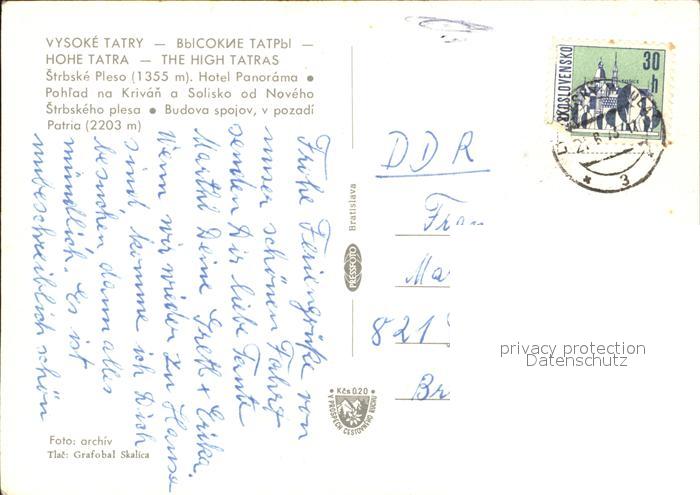 VYSOKÉ TATRY — ВЫСОКИЕ ТАТРЫ —
HOHE TATRA — THE HIGH TATRAS
Štrbské Pleso (1355 m). Hotel Panoráma ●
Pohľad na Kriváň a Solisko od Nového
Štrbského plesa ● Budova spojov, v pozadí
Patria (2203 m)
Frohe Feriengrüße von
unser schönen Fahrt
senden Dir liebe Tante
Martha Deine Greth + Erika.
Wenn wir wieder zu Hause
sind komme ich Dich
besuchen dann alles
mündlich. Es ist
unbeschreiblich schön
Foto: archív
Tlač: Grafobal Skalica
Bratislava
PRESSFOTO
Kčs 0.20
V PROSPECH CESTOVNÉHO RUCHU
ČESKOSLOVENSKO
30 h
3
DDR
Fra
Ma
821
Br
privacy protection
Datenschutz